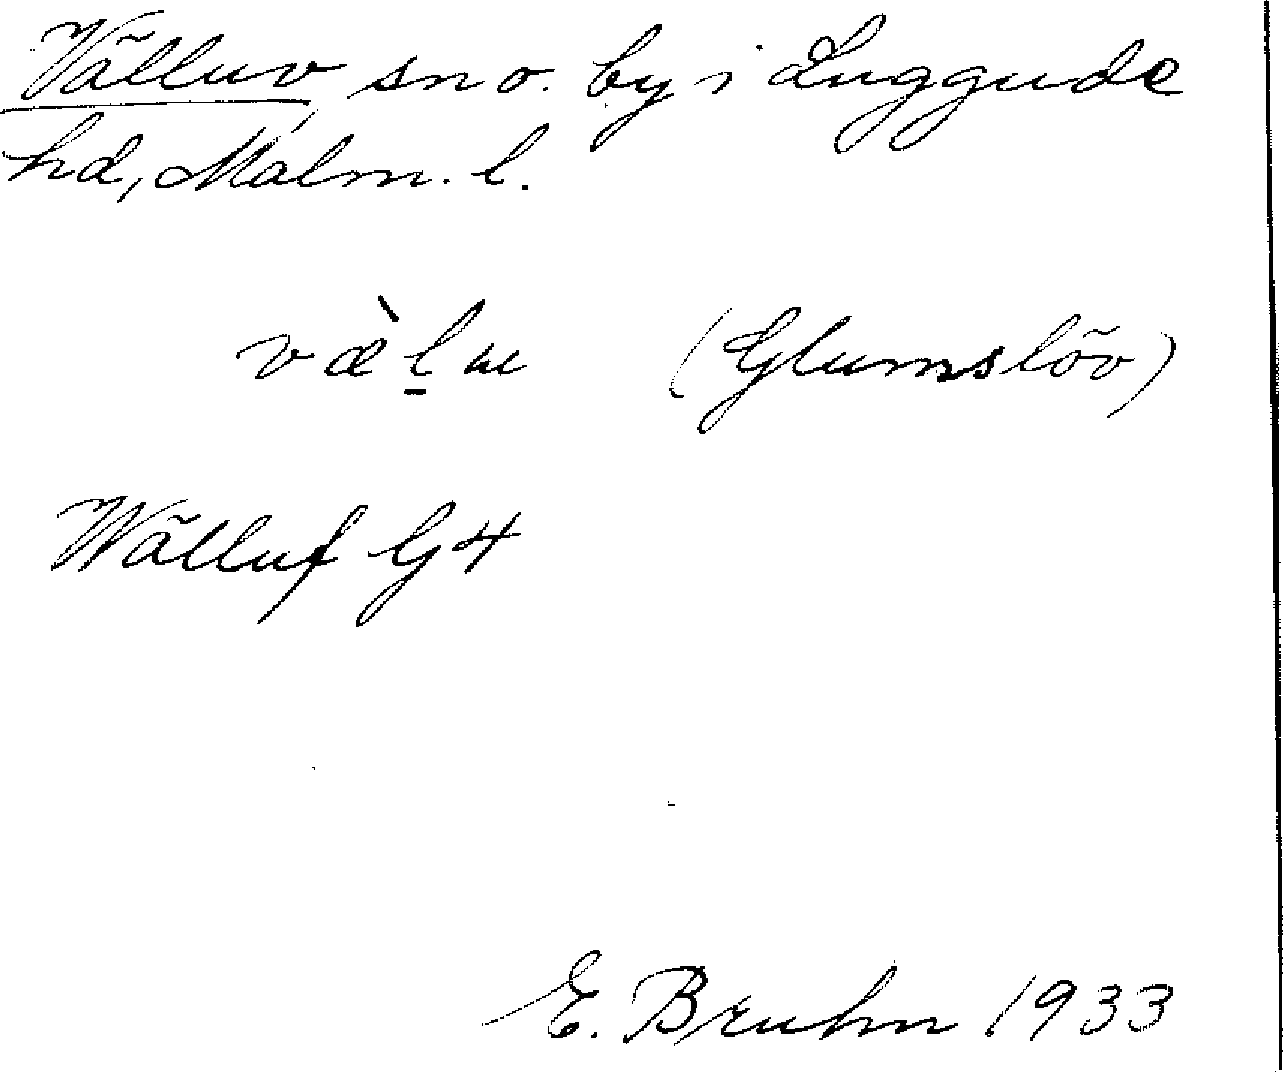 Välluv sn o. by i Luggude
hd, Malm. l.
væ̀l̠u (Glumslöv)
Wälluf G4
E. Bruhn 1933